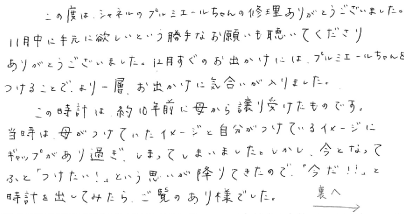 この度は、シャネルのプルミエールちゃんの修理ありがとうございました。
11月中に手元に欲しいという勝手なお願いも聴いてくださり
ありがとうございました。12月すぐのお出かけには、プルミエールちゃんを
つけることで、より一層、お出かけに気合いが入りました。
この時計は、約10年前に母から譲り受けたものです。
当時は、母がつけていたイメージと自分がつけているイメージに
ギャップがあり過ぎ、しまってしまいました。しかし、今となって
ふと「つけたい！」という思いが降りてきたので、“今だ！！”と
時計を出してみたら、ご覧のあり様でした。
裏へ